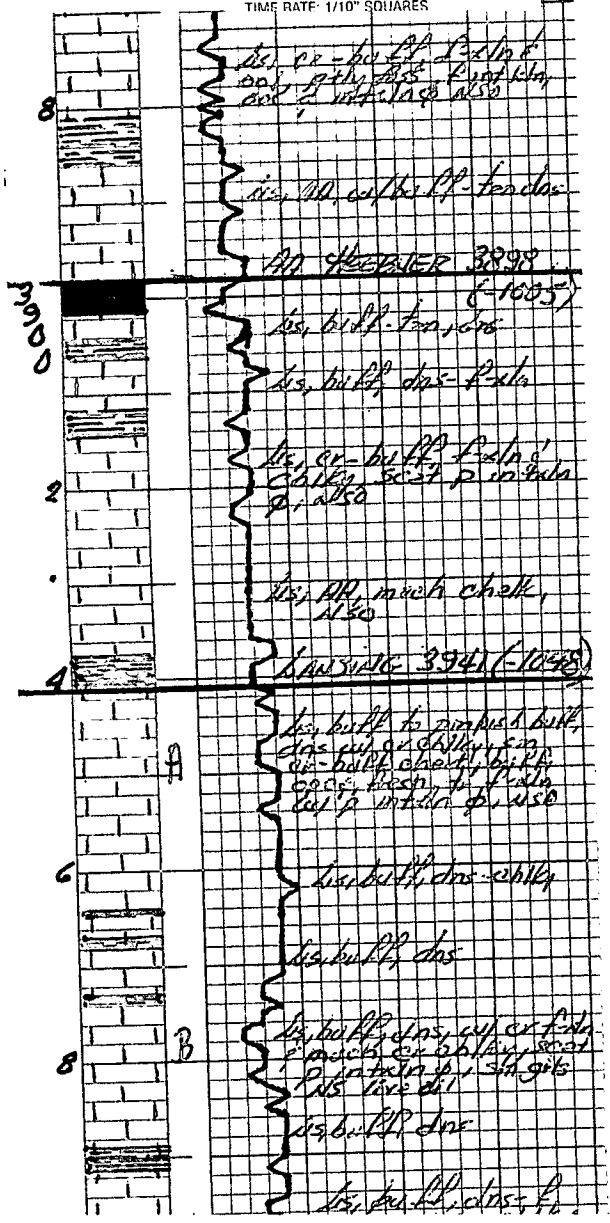 TIME RATE: 1/10" SQUARES
Ls, cr-buff, f-xln &
ool, ptly foss, f intxln,
NSO
8
Ls, AA, w/buff-tan dns
AA HEEBNER 3898
(-1005)
3900
Ls, buff-tan, dns
Ls, buff, dns-f-xln
Ls, cr-buff f-xln &
chlky, scat p intxln
φ, NSO
2
Ls, AA, much chalk,
NSO
LANSING 3941 (-1048)
4
Ls, buff to pinkish buff,
dns w/ cr chlky, sm
cr-buff chert, buff,
f-xln
w/ p intxln φ, NSO
A
6
Ls, buff, dns-chlky
Ls, buff, dns
Ls, buff, dns, w/ cr f-xln
& much cr chlky, scat
p intxln φ,
NS live oil
B
8
Ls, buff, dns
Ls, buff, dns-f